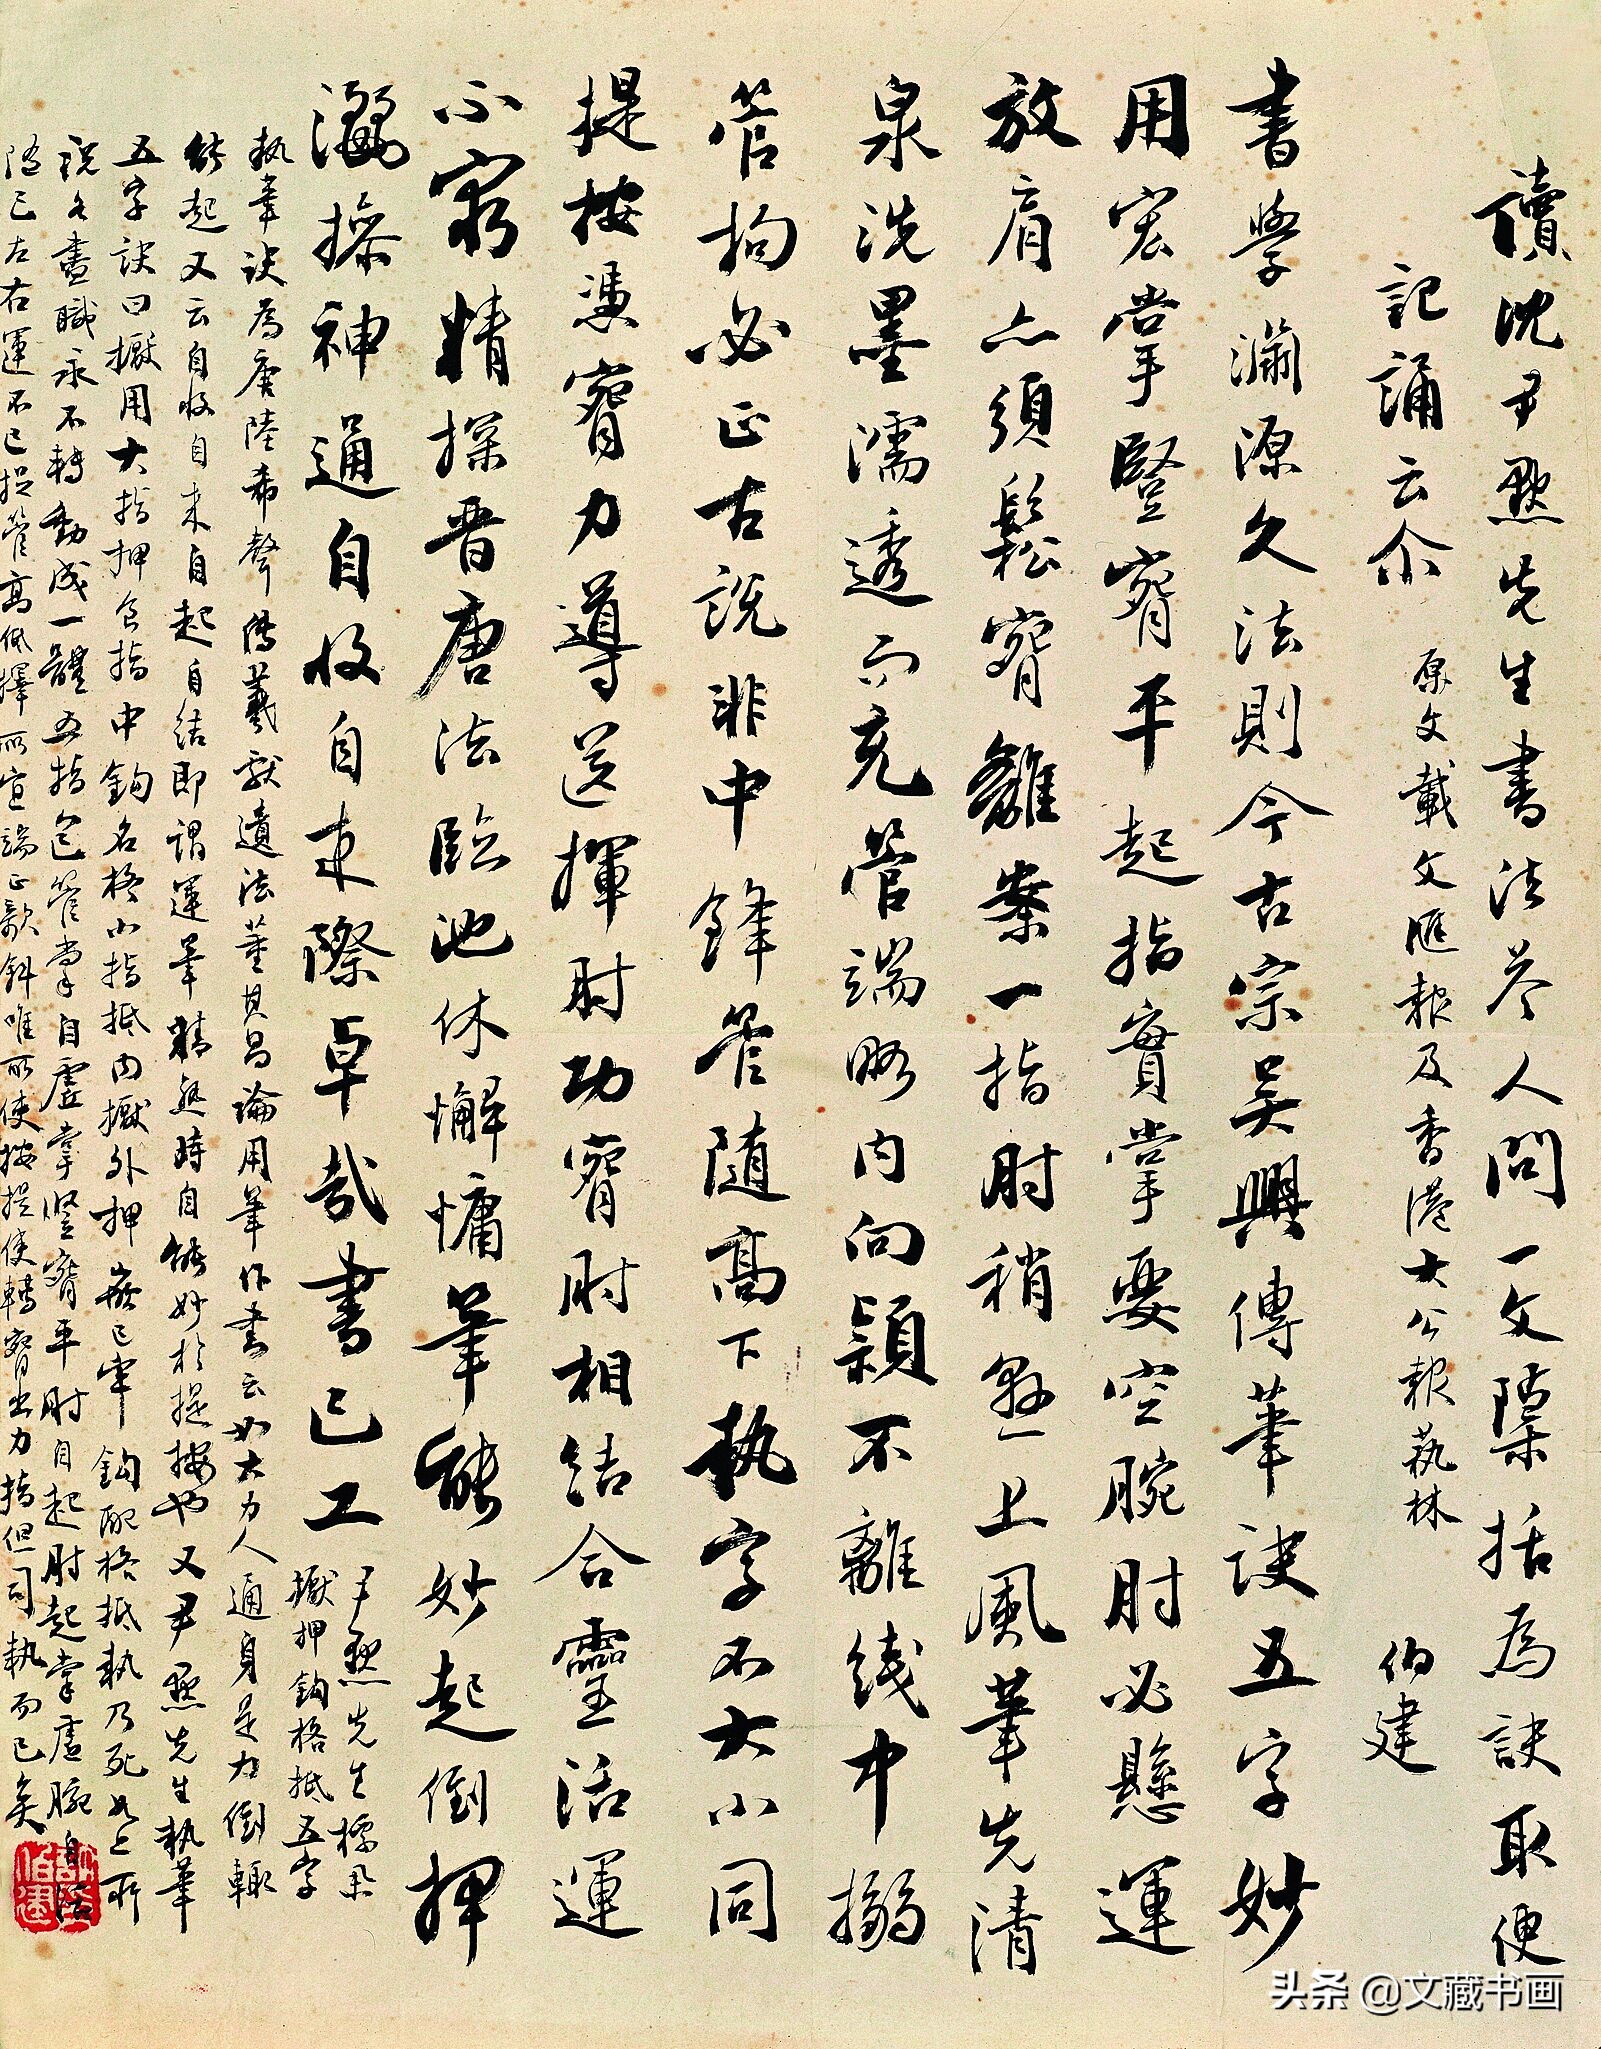 讀沈尹默先生書法答人問一文隱括為訣取便
記誦云尒 原文載文匯報及香港大公報萟林 伯建
書學瀰源久法則今古宗吴興傳筆訣五字妙
用宏掌豎𦝫平起指實掌要空腕肘必懸運
放肩亦須鬆𦝫離案一指肘稍懸上風筆先清
泉洗墨濡透而充管端略內向穎不離线中搦
管拘必正古説非中鋒管随高下執字不大小同
提按憑𦝫力導送揮肘功𦝫肘相結合靈活運
不窮精探晋唐法臨池休懈慵筆能妙起倒押
瀛操神通自收自来際卓哉書已工 尹默先生標畢
擫押鈎格抵五字
執筆訣為唐陸希聲傳羲獻遺法董其昌論用筆作書云如大力人通身是力倒輙
能起又云自收自来自起自結即謂運筆精熟時自能妙於提按也又尹默先生執筆
五字訣曰擫用大指押食指中鈎名格小指抵内擫外押嵌已牢鈎配格抵執乃死如上所
説各盡職永不轉動成一體五指包管掌自虚掌竪𦝫平肘自起肘起掌虚腕自活
随己左右運不已捉管高低擇所宜端正欹斜唯所使按提使轉𦝫出力指但司執而已矣
头条 @文藏书画